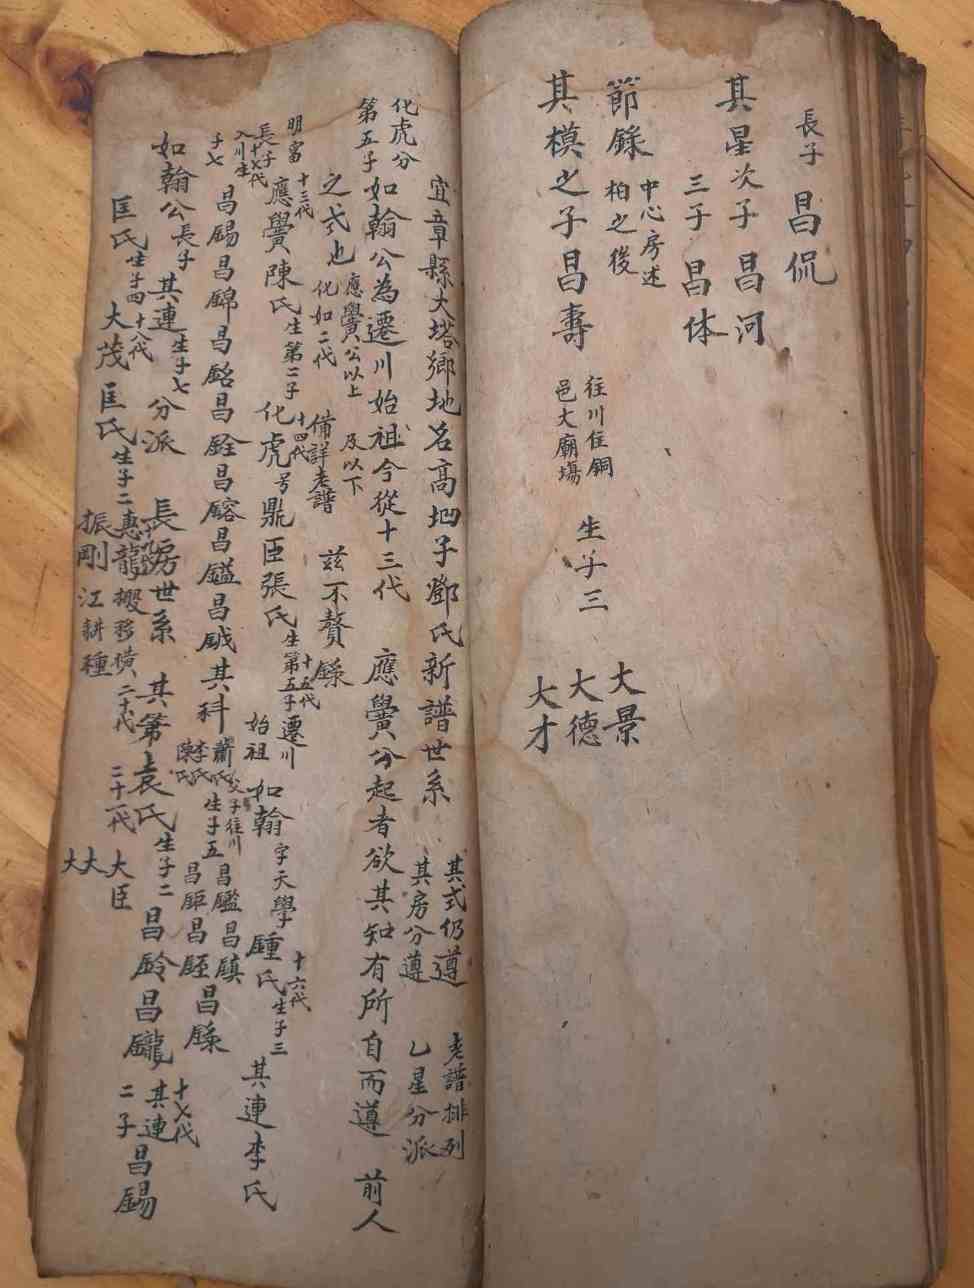 長子 昌侃
其星次子 昌河
三子 昌体
節錄 中心房述
柏之後
其模之子昌壽 往川住銅
邑大廟塲 生子三 大景
大德
大才
宜章縣大塔鄉地名高 子鄧氏新譜世系 其式仍遵 老譜排列
其房分遵 乙星分派
化虎分
第五子 如翰公為遷川始祖今從十三代 應黌分起者欲其知有所自而遵 前人
之式也 應黌公以上 及以下
化如二代 備詳老譜 茲不贅錄
明富 十三代 應黌陳氏 生第二子 十四代 化虎号鼎臣張氏 生第五子 十五代 遷川
始祖 如翰 字天學 鍾氏 生子三 十六代 其連李氏
長子 十七代
入川生
子七 昌錫昌錦昌銘昌銓昌鎔昌鎰昌鉞其科 蕭氏
李氏
陳氏 父子往川
生子五 昌鑑昌鎮
昌鉅昌銍昌錄
如翰公 長子 其連 生子七 分派 長房世系 其第袁氏 生子二 昌鈴昌鑨 十七代 其連
二子 昌錫
匡氏 生子四 十八代 大茂匡氏 生子二 惠龍 搬移 二十代 二十一代 大臣
振剛 江耕種 大
大